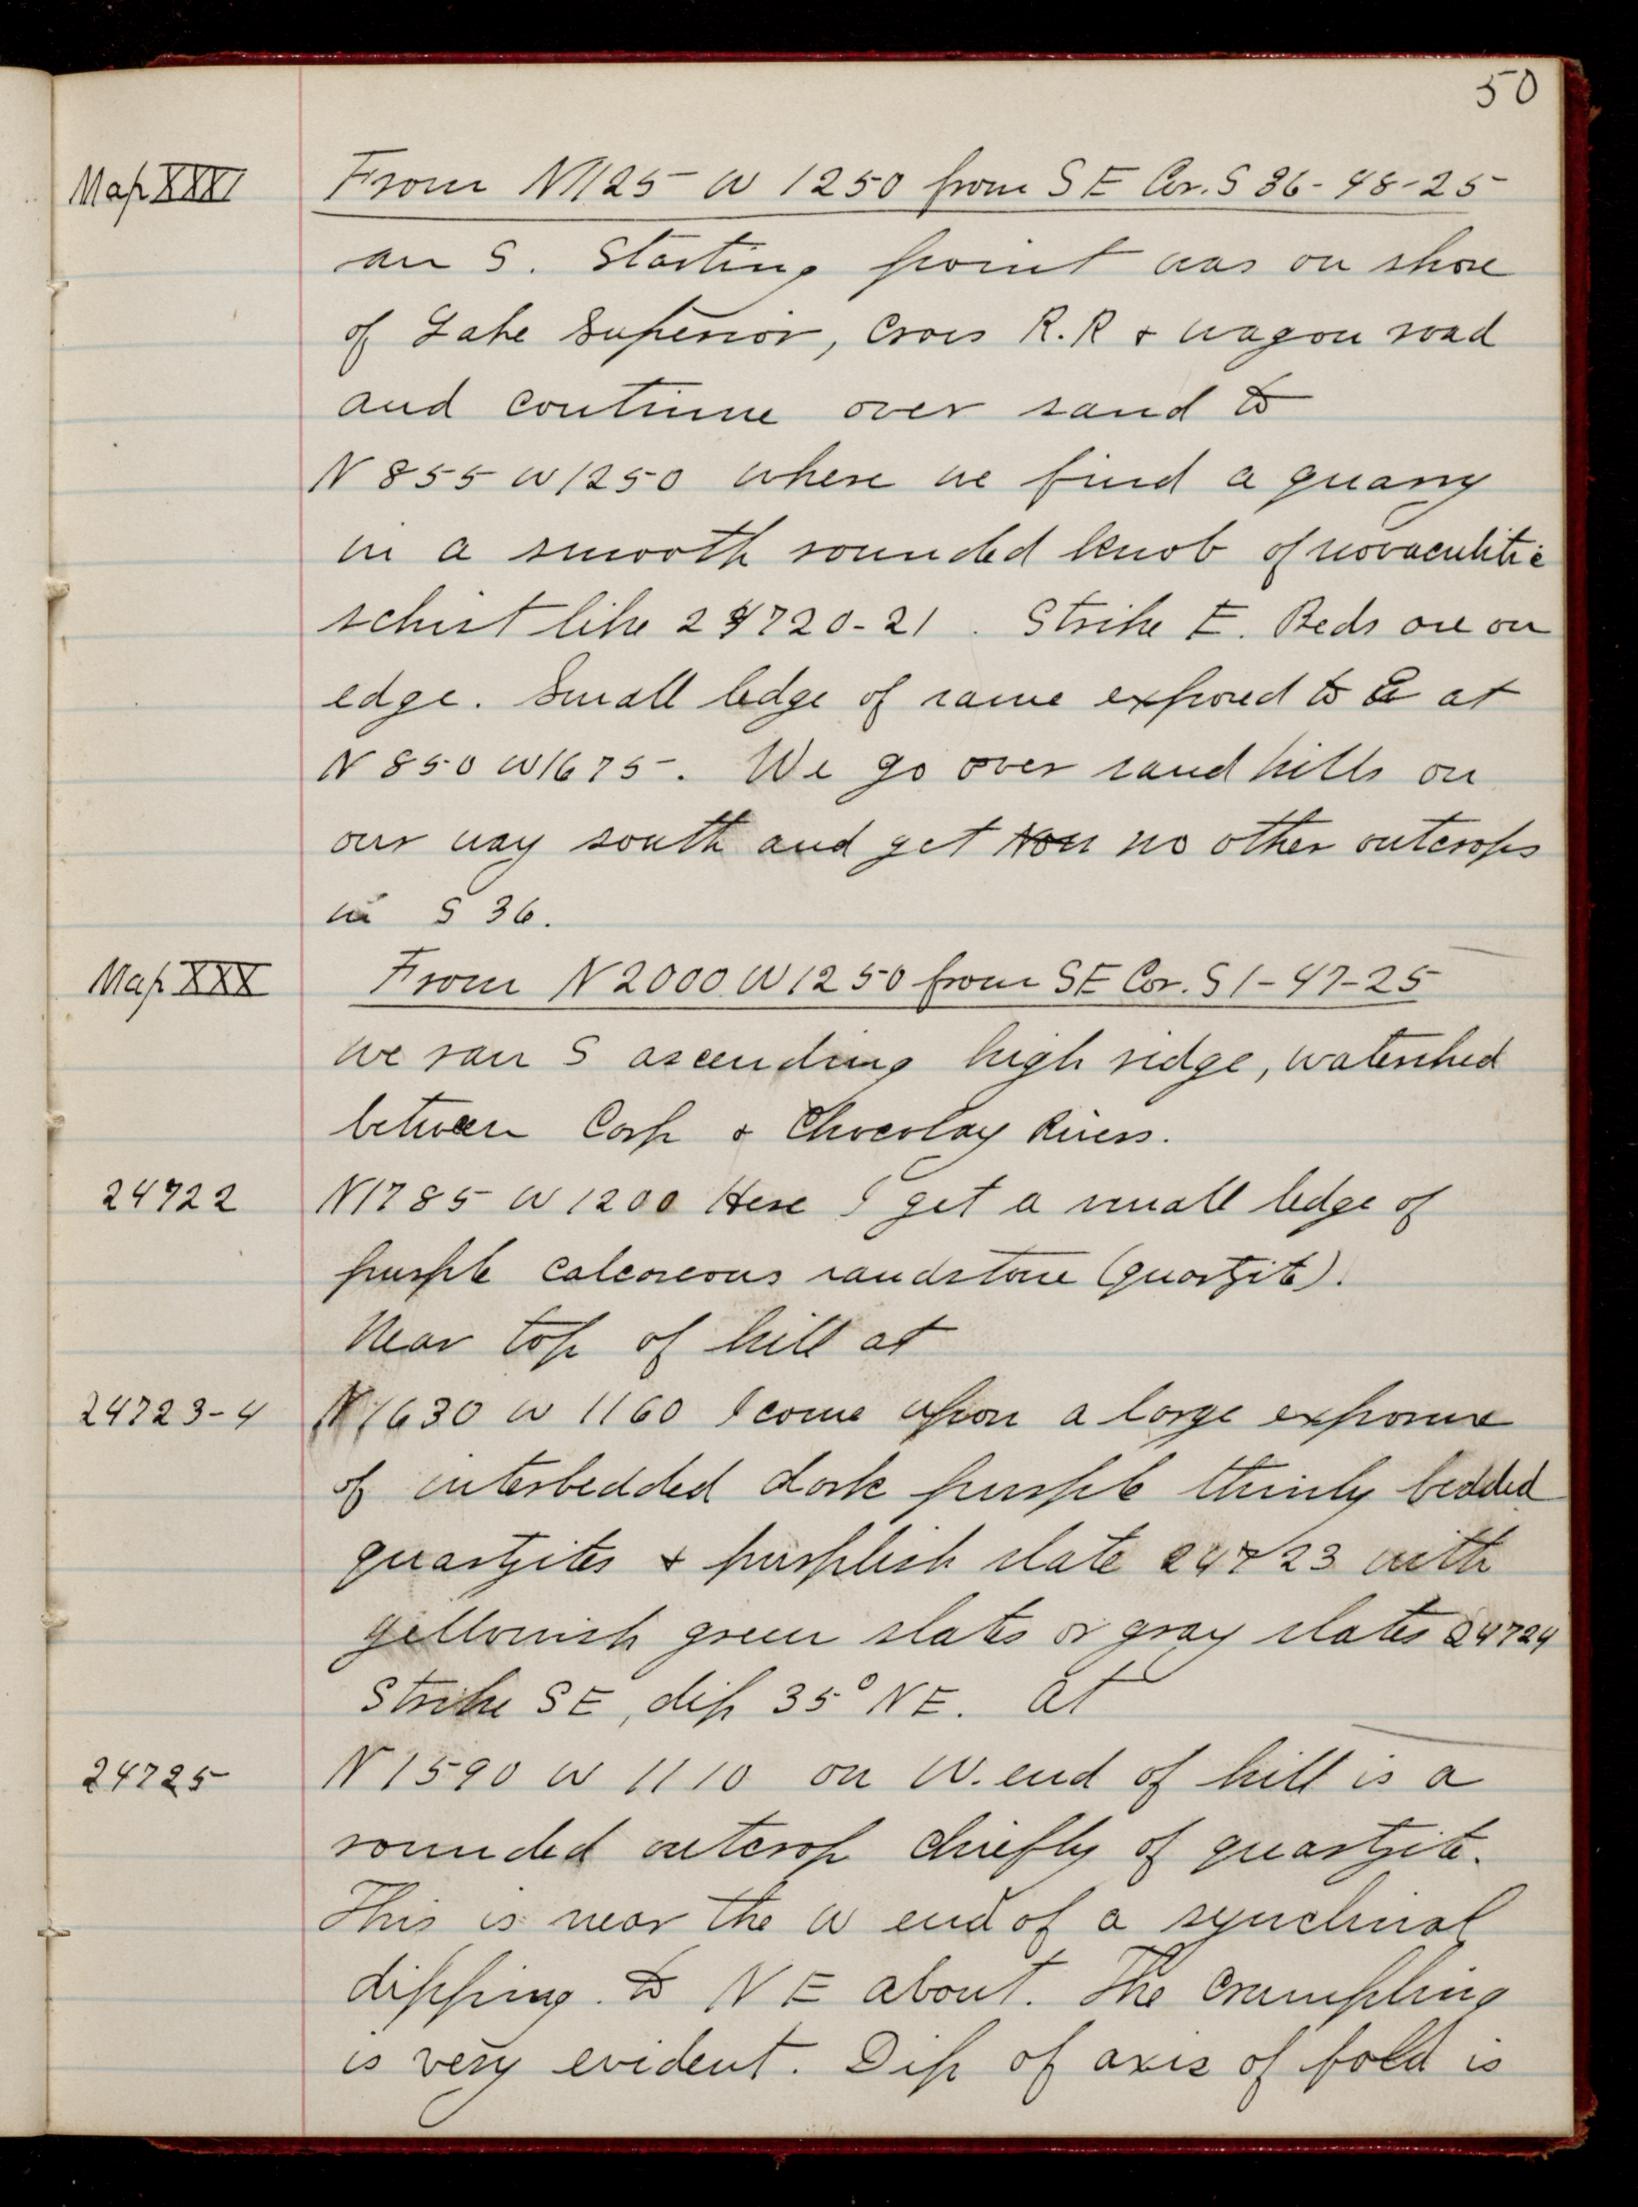 50
Map XXXI
From N1125 W 1250 from S E Cor. S 36-48-25
an S. Starting point was on shore
of Lake Superior, Cross R.R & wagon road
and continue over sand to
N 855 W 1250 where we find a quarry
in a smooth rounded knob of novaculitic
schist like 24720-21. Strike E. Beds are on
edge. Small ledge of same exposed to E at
N 850 W1675. We go over sand hills on
our way south and get no other outcrops
in S 36.
Map XXX
From N 2000 W 1250 from SE Cor. S 1-47-25
we ran S ascending high ridge, watershed
between Carp & Chocolay Rivers.
24722
N1785 W 1200 Here I get a small ledge of
purple calcareous sandstone (quartzite).
Near top of hill at
24723-4
N1630 W 1160 I come upon a large exposure
of interbedded dark purple thinly bedded
quartzites & purplish slate 24723 with
yellowish green slates or gray slates 24724
Strike SE, dip 35° NE. At
24725
N 1590 W 1110 on W. end of hill is a
rounded outcrop chiefly of quartzite.
This is near the W end of a synclinal
dipping to N E about. The crumpling
is very evident. Dip of axis of fold is